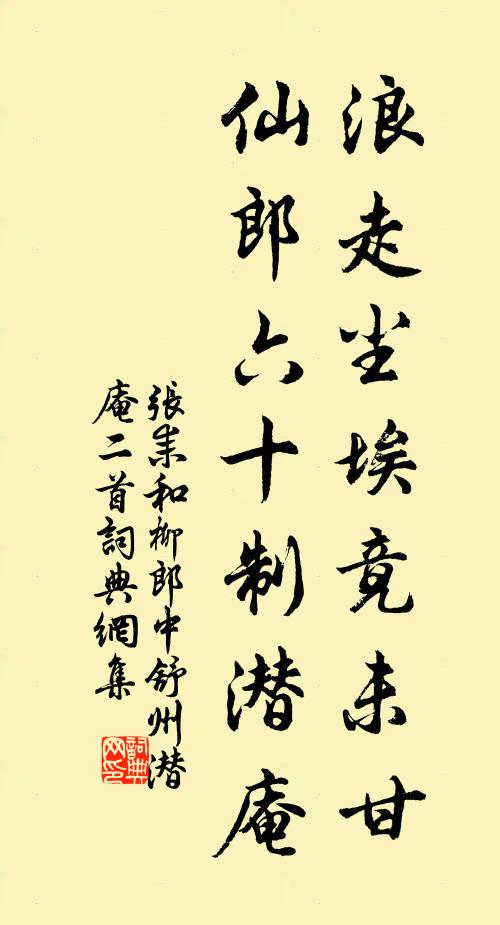 浪走尘埃竟未甘
仙郎六十制潜庵
張耒和柳郎中舒州潜
庵二首詞典網集
詞典网印